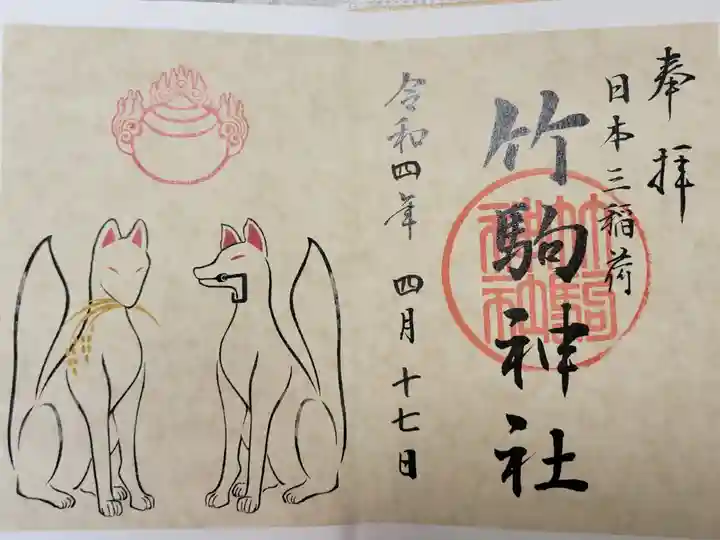 奉拝
日本三稲荷
竹駒神社
竹駒神社
令和四年 四月十七日